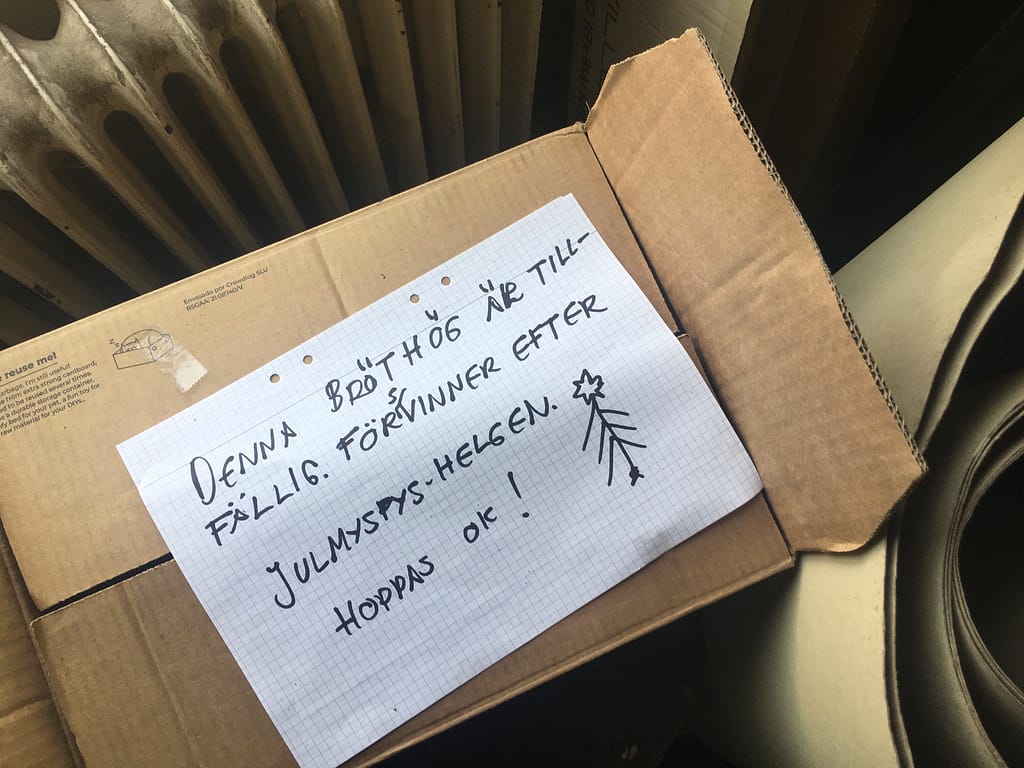 Envasado por Crowdlog SLU
reuse me!
I'm still useful!
from extra strong cardboard,
to be reused several times.
a durable storage container,
bed for your pet, a fun toy for
raw material for your DIYs...
DENNA BRÖTHÖG ÄR TILL-
FÄLLIG. FÖRSVINNER EFTER
JULMYSPYS-HELGEN.
HOPPAS OK!